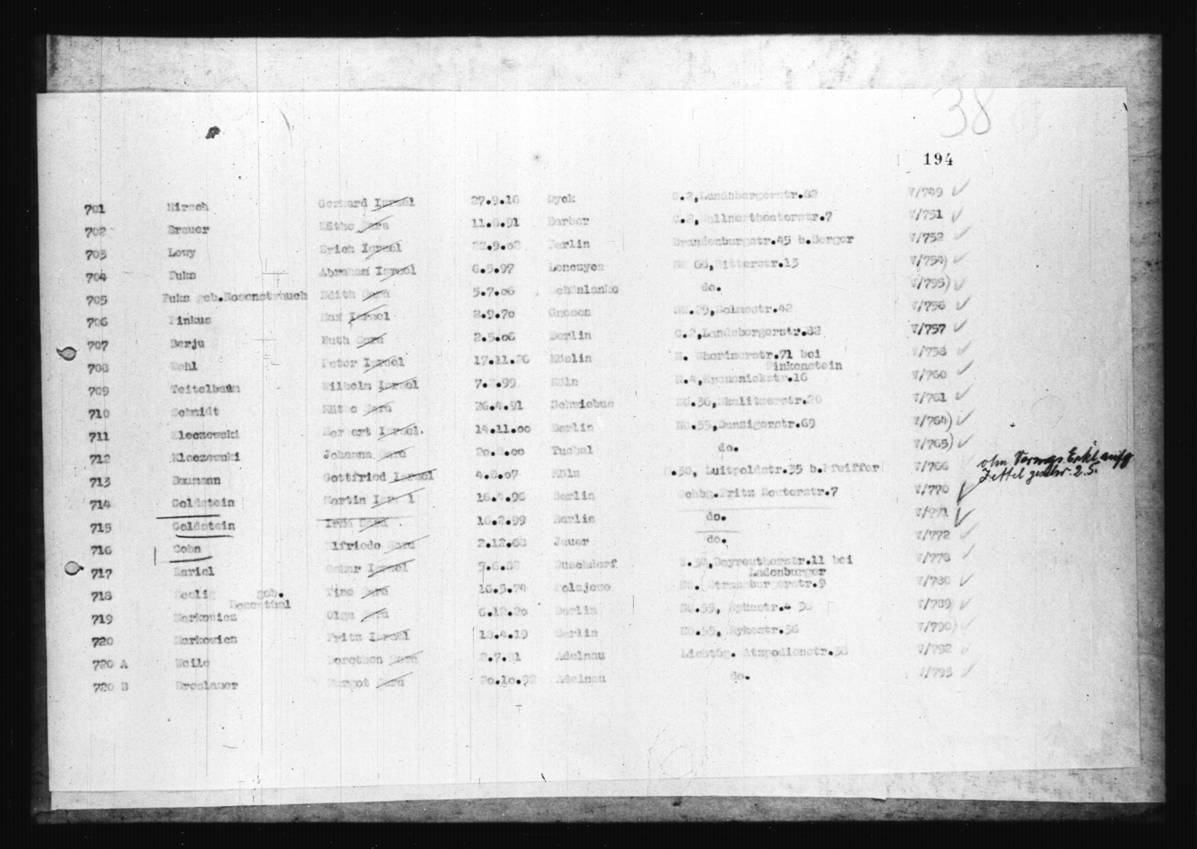 38
194
701 Hirsch Gerhard Israel 27.9.16 Lyck C.2,Landsbergerstr.82 V/749
702 Breuer Käthe Sara 11.8.91 C.2,Wallnertheaterstr.7 V/751
703 Lowy Erich Israel 22.9.02 Berlin Brandenburgstr.45 b.Berger V/752
704 Fuks Abraham Israel 6.5.97 Lenczyca SW 68,Ritterstr.13 V/754)
705 Fuks geb.Rosenstrauch Edith Sara 5.7.06 Schönlanke do. V/755)
706 Pinkus Max Israel 2.9.70 SW.29,Solmsstr.42 V/756
707 Berju Ruth Sara 2.5.06 Berlin C.2,Landsbergerstr.82 V/757
708 Wohl Peter Israel 17.11.26 N. Chorinerstr.71 bei V/758
Finkenstein
709 Teitelbaum Wilhelm Israel 7.2.99 Köln N.4,Krausnickstr.16 V/760
710 Schmidt Käthe Sara 26.4.91 Schwiebus SO.36,Skalitzerstr.20 V/761
711 Kleczewski Herbert Israel. 14.11.00 Berlin NO.55,Danzigerstr.69 V/764)
712 Kleczewski Johanna Sara 20.8.00 Tuchel do. V/765)
713 Baumann Gottfried Israel 4.8.07 Köln W.30, Luitpoldstr.35 b.Pfeiffer V/766
714 Goldstein Martin Isr l 16.4.96 Berlin Schbg.Fritz Reuterstr.7 V/770
715 Goldstein Irma Sara 16.2.99 Berlin do. V/771
716 Cohn Elfriede Sara 2.12.68 Jauer do. V/772
717 Hariel Oskar Israel Buschdorf W.30,Bayreutherstr.11 bei V/778
Ladenburger
718 Seelig geb. Tina Sara 16.5.74 Polajewo NO. Strassburgerstr.9 V/780
Rosenthal
719 Markowicz Olga Sara 6.12.20 Berlin NO.55, Rykestr. 36 V/789)
720 Markowicz Fritz Israel 18.4.19 Berlin NO.55, Rykestr.36 V/790)
720 A Weile Dorothea Sara 2.7.81 Adelnau Lichtbg. Atzpodienstr.38 V/792
720 B Breslauer Margot Sara 20.10.92 Adelnau do. V/793